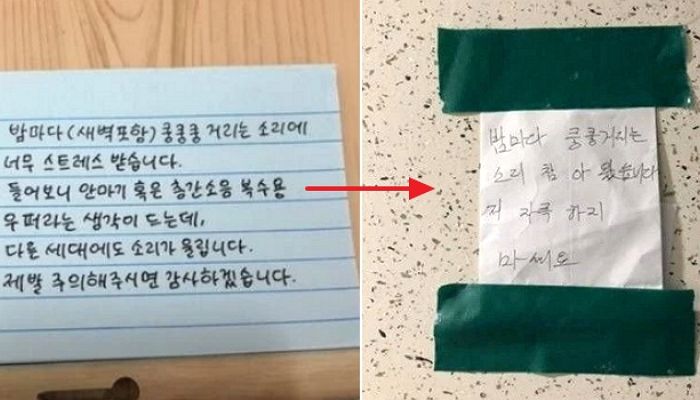 밤마다(새벽포함) 쿵쿵쿵 거리는 소리에
너무 스트레스 받습니다.
들어보니 안마기 혹은 층간소음 복수용
우퍼라는 생각이 드는데,
다른 세대에도 소리가 울립니다.
제발 주의해주시면 감사하겠습니다.
밤마다 쿵쿵거리는
소리 참아 왔습니다
자극 하지
마세요